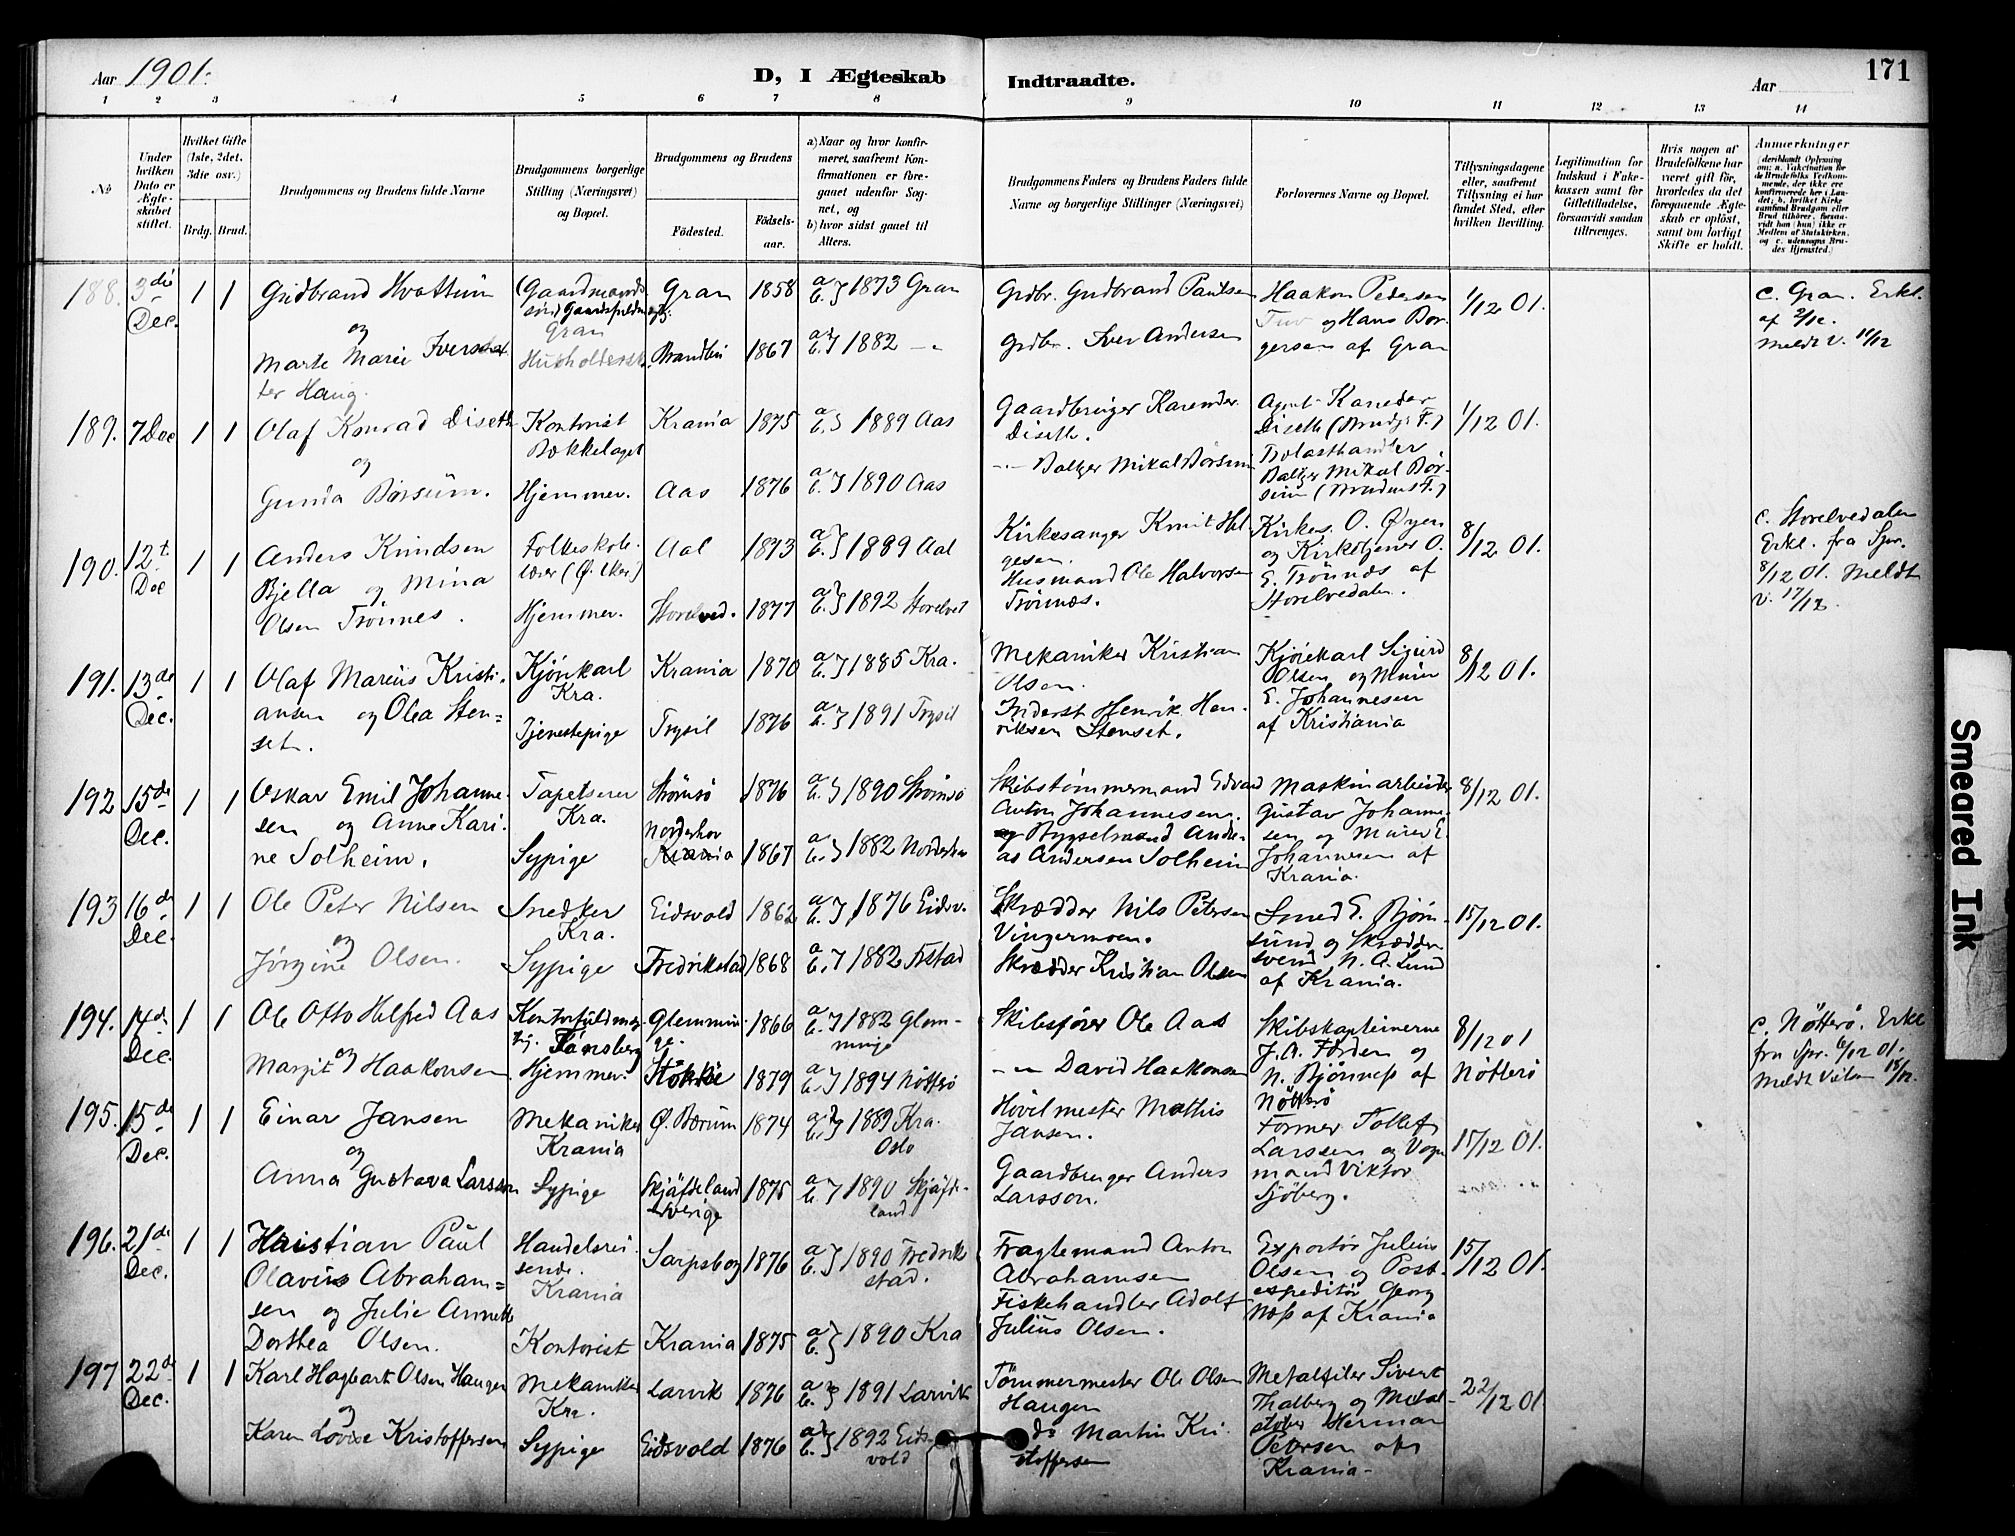 Aar 1901.
D, I Ægteskab Indtraadte.
Aar
171
1 2 3 4 5 6 7 8 9 10 11 12 13 14
No
Under hvilken Dato er Ægteskabet stiftet.
Hvilket Gifte (1ste, 2det, 3die osv.)
Brdg. Brud.
Brudgommens og Brudens fulde Navne
Brudgommens borgerlige Stilling (Næringsvei) og Bopæl.
Brudgommens og Brudens
Fødested. Fødselsaar.
a) Naar og hvor konfirmeret, saafremt Konfirmationen er foregaaet udenfor Sognet, og
b) hvor sidst gaaet til Alters.
Brudgommens Faders og Brudens Faders fulde Navne og borgerlige Stillinger (Næringsvei)
Forlovernes Navne og Bopæl.
Tillysningsdagene eller, saafremt Tillysning ei har fundet Sted, efter hvilken Bevilling.
Legitimation for Indskud i Enkekassen samt for Giftetilladelse, forsaavidt saadan tiltrænges.
Hvis nogen af Brudefolkene har været gift før, hvorledes da det foregaaende Ægteskab er opløst, samt om lovligt Skifte er holdt.
Anmærkninger
188. 3die Dec. 1 1
Gudbrand Hvattum
og
Marte Marie Iversdatter Haug.
(Gaardmands søn) Gaardsfuldmægt.
Gran
Husholderske
Gran 1858 a b } 1873 Gran
Brandbu 1867 a b } 1882 —"—
Grdbr. Gudbrand Paulsen
Grdbr. Iver Andersen
Haakon Pedersen
Tuv og Hans Borgersen af Gran
1/12 01.
c. Gran. Erkl.
af 2/12.
Meldt v. 11/12
189. 7 Dec 1 1
Olaf Konrad Diseth
og
Gunda Børsum.
Kontorist
Bækkelaget
Hjemmev.
Krania 1875 a b } 1889 Aas
Aas 1876 a b } 1890 Aas
Gaardbruger Karender Diseth.
—"— Baltzer Mikal Børsum
Agent Kareder
Diseth (Brudg. F.)
Trælasthandler
Baltzer Mikal Børsum (Brudens F.)
1/12 01.
190. 12t Dec 1 1
Anders Knudsen
Bjella og Mina
Olsen Trønnes.
Folkeskolelærer (Ø. Eker)
Hjemmev.
Aal 1873 a b } 1889 Aal
Storelved. 1877 a b } 1892 Storelved
Kirkesanger Knut Helgesen.
Husmand Ole Halvorsen
Trønnes.
Kirkes. O. Øyen
og Kirketjener O.
E. Trønnæs af
Storelvedalen.
8/12 01.
c. Storelvedalen
Erkl. fra Spr.
8/12 01. Meldt
v. 17/12.
191. 13de Dec. 1 1
Olaf Marius Kristiansen og Olea Stenset.
Kjørekarl
Kra.
Tjenestepige
Krania 1870 a b } 1885 Kra.
Trysil 1876 a b } 1891 Trysil
Mekaniker Kristian
Olsen.
Inderst Henrik Henriksen Stenset.
Kjørekarl Sigurd
Olsen og Murer
E. Johannesen
af Kristiania
8/12 01.
192 15de Dec. 1 1
Oskar Emil Johannesen og Anne Karine Solheim.
Tapetserer
Kra.
Sypige
Strømsø 1876 a b } 1890 Strømsø
Norderhov
Krania 1867 a b } 1882 Norderhov
Skibstømmermand Edvard
Anton Johannesen.
og Bygselmand Andreas Andersen Solheim
Maskinarbeider
Gustav Johannesen og Murer E.
Johannesen af
Krania.
8/12 01.
193 16de Dec. 1 1
Ole Peter Nilsen
og
Jørgine Olsen.
Snedker
Kra.
Sypige
Eidsvold 1862 a b } 1876 Eidsv.
Fredrikstad 1868 a b } 1882 Frstad
Skrædder Nils Petersen
Vingermoen.
Skrædder Kristian Olsen
Smed E. Bjørnsund og Skræddersvend N. A. Lund
af Krania.
15/12 01.
194. 14de Dec. 1 1
Ole Otto Helfred Aas
og
Margit Haakonsen
Kontorfuldmægtig. Tønsberg
Hjemmev.
Glemminge. 1866 a b } 1882 Glemminge
Stokke 1879 a b } 1894 Nøtterø
Skibsfører Ole Aas
—"— David Haakonsen
Skibskapteinerne
J. A. Førden og
N. Bjønness af
Nøtterø
8/12 01
Nøtterø
c. Nøtterø. Erkl
fra Spr. 6/12 01.
195. 15de Dec. 1 1
Einar Jansen
og
Anna Gustava Larsson
Mekaniker
Krania
Sypige
Ø. Bærum 1874 a b } 1889 Kra.
Oslo
Skjäfdeland
Sverige 1875 a b } 1890 Skjäfdeland
Høvelmester Mathis
Jansen.
Gaardbruger Anders
Larsson.
Former Tollef
Larssen og Vognmand Viktor
Sjöberg.
15/12 01.
196. 21de Dec. 1 1
Kristian Paul
Olavius Abrahamsen og Julie Annette
Dorthea Olsen.
Handelsreisende.
Krania
Kontorist
Sarpsborg 1876 a b } 1890 Fredrikstad.
Krania 1875 a b } 1890 Kra
Fragtemand Anton
Abrahamsen
Fiskehandler Adolf
Julius Olsen.
Exportør Julius
Olsen og Postexpeditør Georg
Næss af Krania
15/12 01.
197 22de Dec. 1 1
Karl Hagbart Olsen Haugen
og
Karen Lovise Kristoffersen
Mekaniker
Kra.
Sypige
Larvik 1876 a b } 1891 Larvik
Eidsvold 1876 a b } 1892 Eidsvold
Tømmermester Ole Olsen
Haugen
do Martin Kristoffersen
Metalfiler Sivert
Thalberg og Metalstøber Herman
Petersen af
Krania.
22/12 01.
Smeared Ink